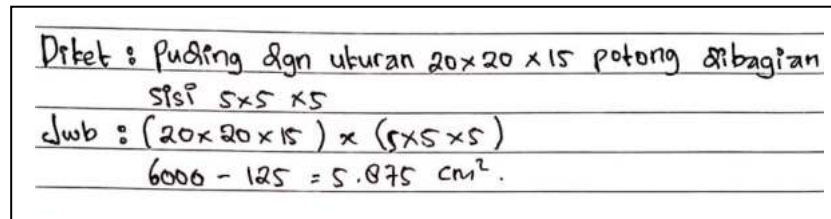 Diket : Puding dgn ukuran 20 × 20 × 15 potong dibagian
sisi 5×5 ×5
Jwb : (20 × 20 × 15 ) × (5×5 ×5)
6000 - 125 = 5.875 cm².